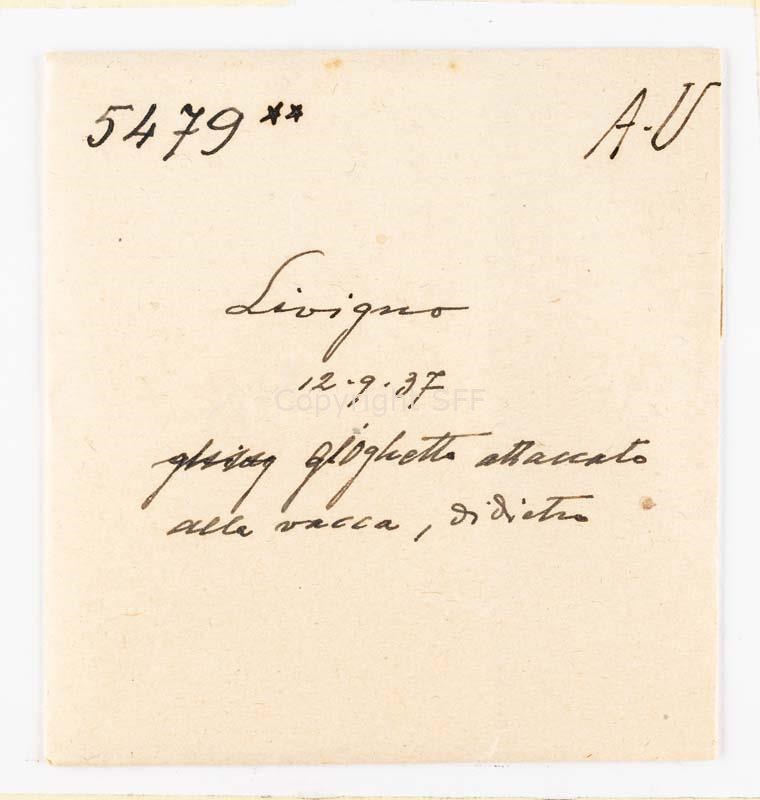 5479** A.U
Livigno
12.9.37
Copyright SFF
glóghetto attaccato
alla vacca, didietro